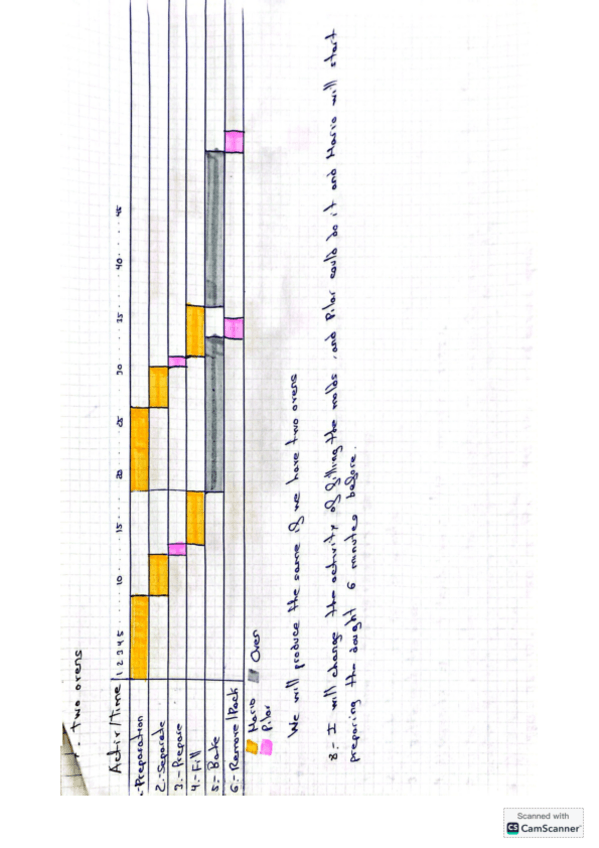 7.- two ovens
Activ/Time 1 2 3 4 5 10 15 20 25 30 35 40 45
1.-Preparation
2.-Separate
3.-Prepare
4.-Fill
5.-Bake
6.-Remove/Pack
Mario Oven
Pilar
We will produce the same if we have two ovens
8.- I will change the activity of filling the molds and Pilar could do it and Mario will start
preparing the dought 6 minutes before.
Scanned with
CS CamScanner